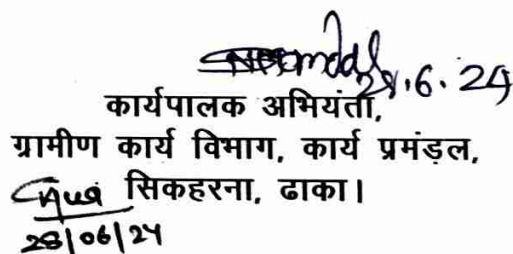 28.6.24
कार्यपालक अभियंता,
ग्रामीण कार्य विभाग, कार्य प्रमंड़ल,
सिकहरना, ढाका।
28/06/24